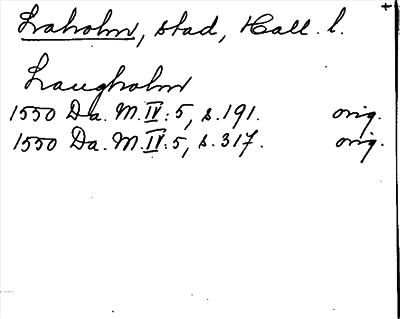 Laholm, stad, Hall. l.
Laugholm
1550 Da. M. IV: 5, s. 191. orig.
1550 Da. M. IV: 5, s. 317. orig.